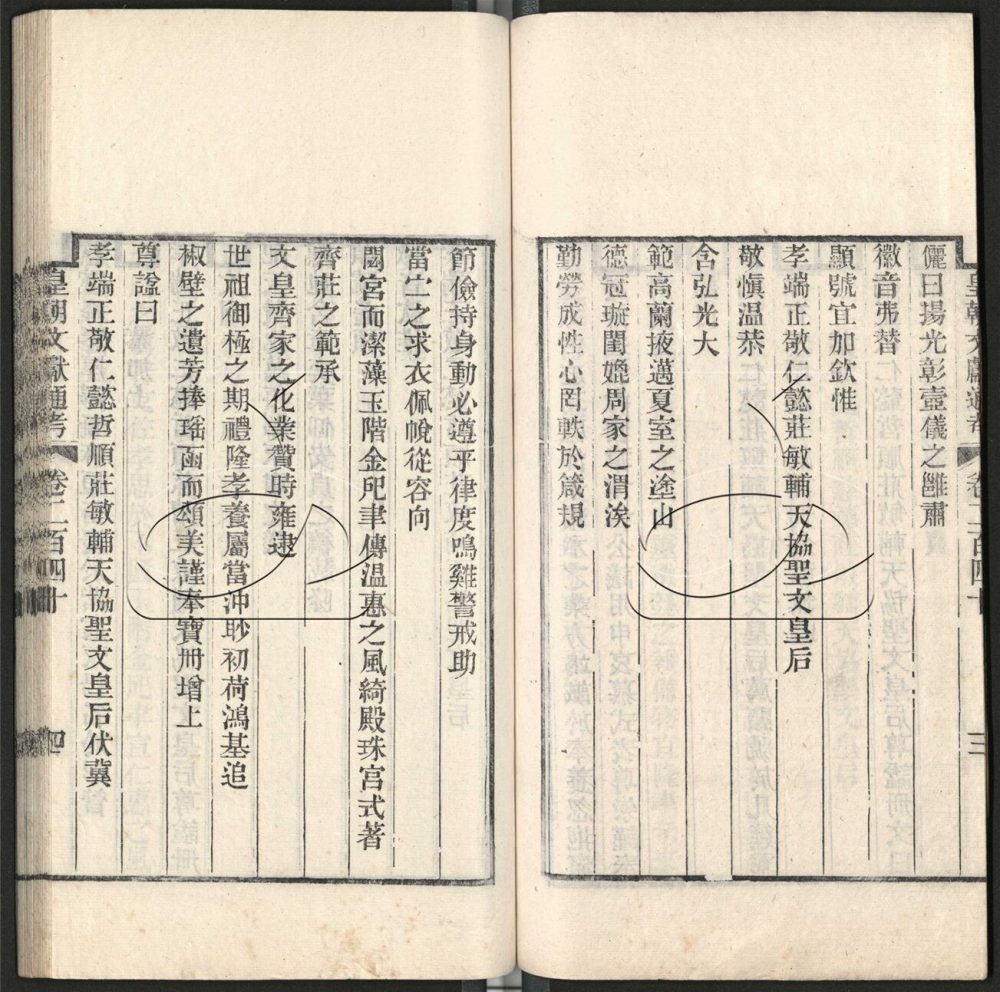 皇朝文獻通考 卷二百四十 三
儷曰揚光彰壼儀之雝肅
徽音弗替
顯號宜加欽惟
孝端正敬仁懿莊敏輔天協聖文皇后
敬慎温恭
含弘光大
範高蘭掖邁夏室之塗山
德冠璇閨媲周家之渭涘
勤勞成性心罔軼於箴規
節儉持身動必遵乎律度鳴雞警戒助
當宁之求衣佩帨從容向
閟宮而潔藻玉階金戺聿傳温惠之風綺殿珠宮式著
齊莊之範承
文皇齊家之化業贊時雍逮
世祖御極之期禮隆孝養屬當沖眇初荷鴻基追
椒壁之遺芳捧瑶函而頌美謹奉寶冊增上
尊諡曰
孝端正敬仁懿哲順莊敏輔天協聖文皇后伏冀
皇朝文獻通考 卷二百四十 四